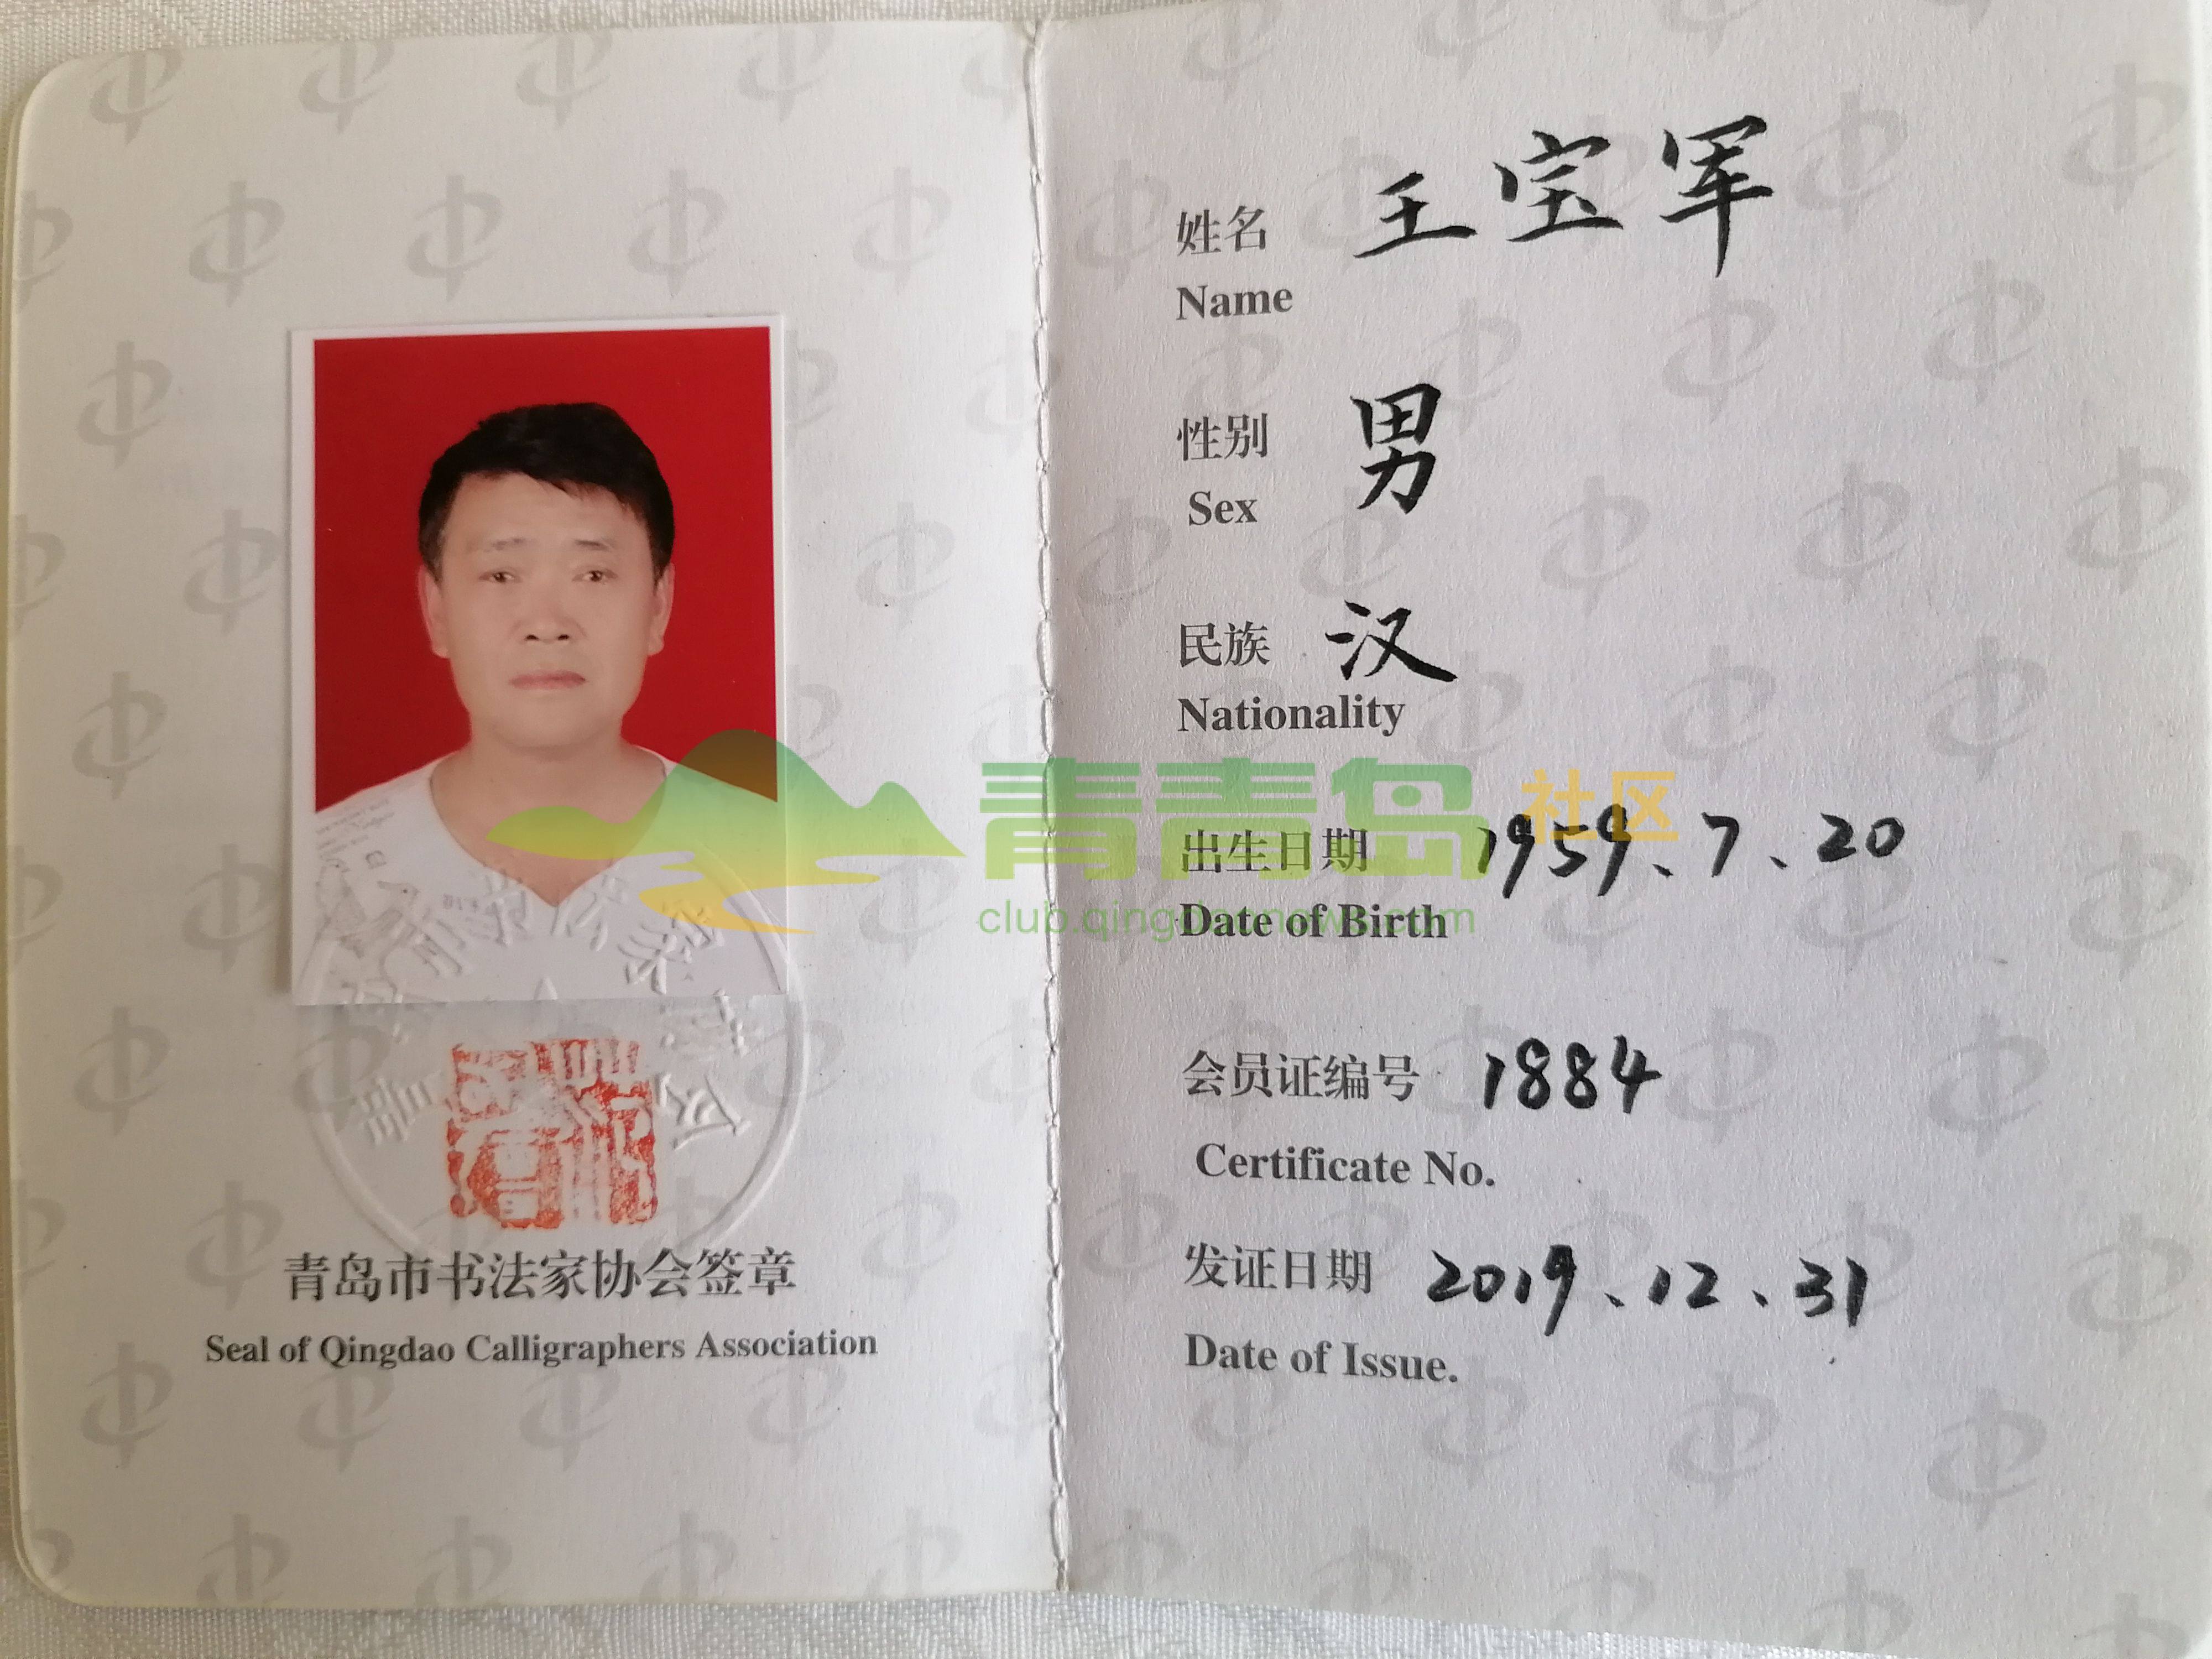 青岛市书法家协会签章
Seal of Qingdao Calligraphers Association
姓名 王宝军
Name
性别 男
Sex
民族 汉
Nationality
青青岛社区
club.qingdaonews.com
出生日期 1959、7、20
Date of Birth
会员证编号 1884
Certificate No.
发证日期 2019、12、31
Date of Issue.